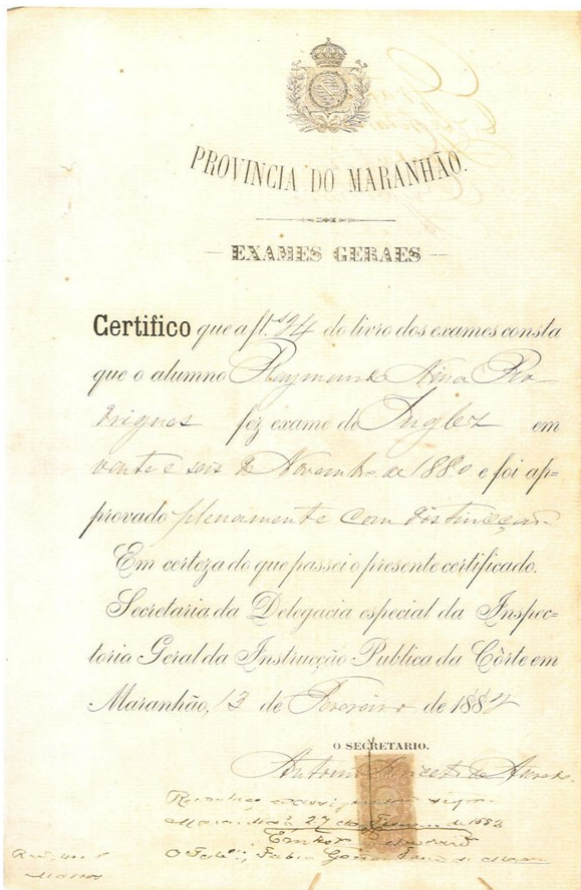 PROVINCIA DO MARANHÃO.
EXAMES GERAES
Certifico que a fl. 94 do livro dos exames consta
que o alumno Raymundo Nina Ro-
drigues fez exame de Inglez em
vinte e seis de Novembro de 1880 e foi ap-
provado plenamente com distincção
Em certeza do que passei o presente certificado.
Secretaria da Delegacia especial da Inspec-
toria Geral da Instrucção Publica da Côrte em
Maranhão, 13 de Fevereiro de 1882
O SECRETARIO.
Antonio
Reconheço
Maranhão 27 de de 1882
Em de verdade
O Fabio Gomes